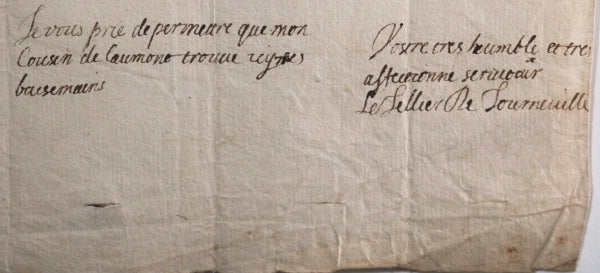 Je vous prie de permettre que mon
Cousin de Caumont trouue icy ses
baisemains
Vostre tres heumble et tres
affectionne seruitair
Le Tellier De Tourneuille